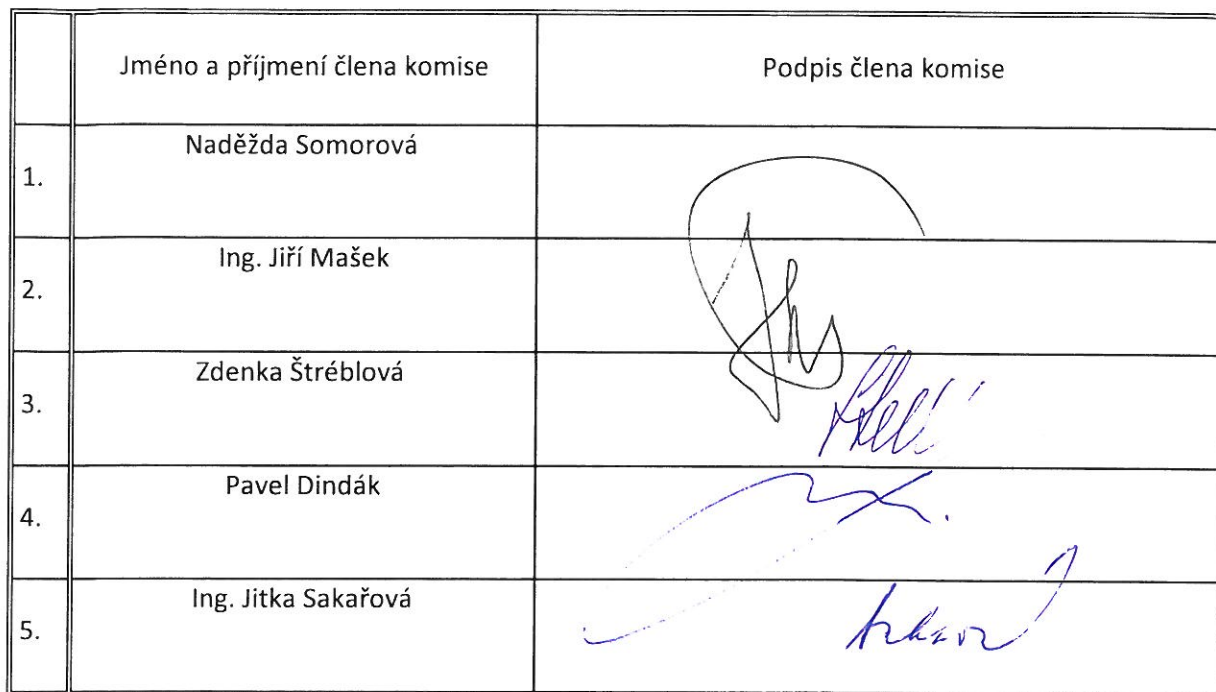 Jméno a příjmení člena komise
Podpis člena komise
1.
Naděžda Somorová
2.
Ing. Jiří Mašek
3.
Zdenka Štréblová
4.
Pavel Dindák
5.
Ing. Jitka Sakařová